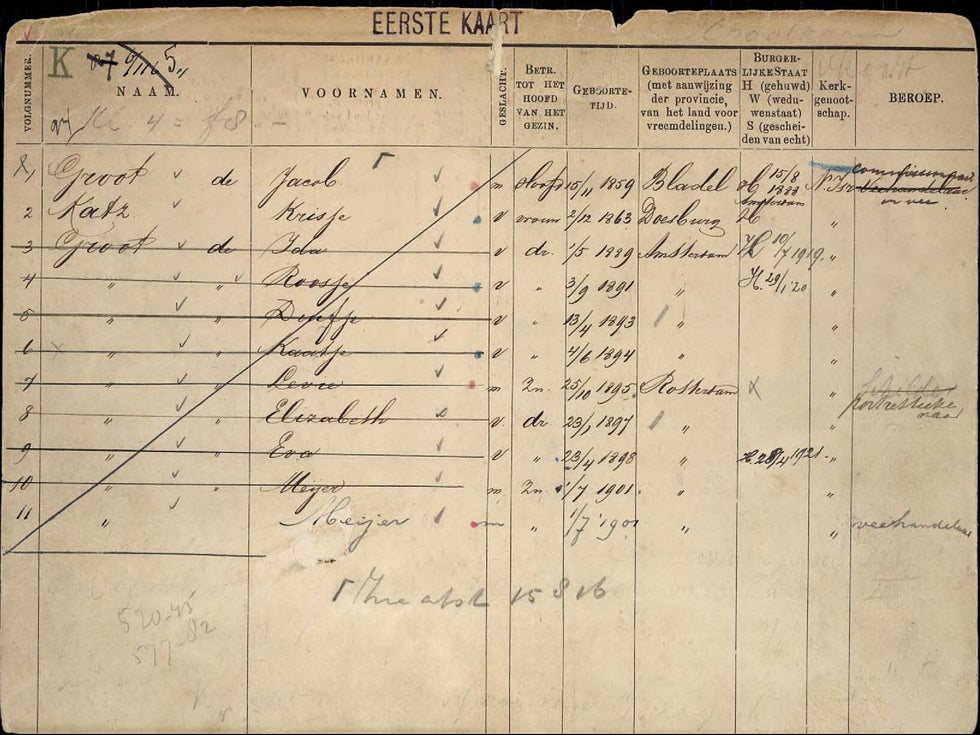 EERSTE KAART
VOLGNUMMER. K NAAM. VOORNAMEN. GESLACHT. BETR. TOT HET HOOFD VAN HET GEZIN. GEBOORTE-TIJD. GEBOORTEPLAATS (met aanwijzing der provincie, van het land voor vreemdelingen.) BURGER-LIJKE STAAT H (gehuwd) W (wedu-wenstaat) S (geschei-den van echt) Kerk-genoot-schap. BEROEP.
1 Groot de Jacob. m Hoofd 15/11 1859 Bladel H 15/8 1888 Amsterdam N. Isr commissionair Veehandelaar in vee
2 Katz Krisje v vrouw 2/12 1863 Doesburg H "
3 Groot de Ida v dr. 1/5 1889 Amsterdam H 10/7 1919. "
4 " " Roosje v " 3/9 1891 " H. 29/1 '20 "
5 " " v " 13/4 1893 " "
6 " " Kaatje v " 4/6 1894 " "
7 " " Levie m Zn. 25/10 1895. Rotterdam "
8 " Elizabeth v. dr 23/1 1897 " "
9 " Eva v " 23/4 1898 " H. 28/4 1921 - "
10 " Meijer m. Zn. 1/7 1901. " "
11 " Meijer m " 1/7 '190 " " veehandelaar
15 8 16
520-45
577-82